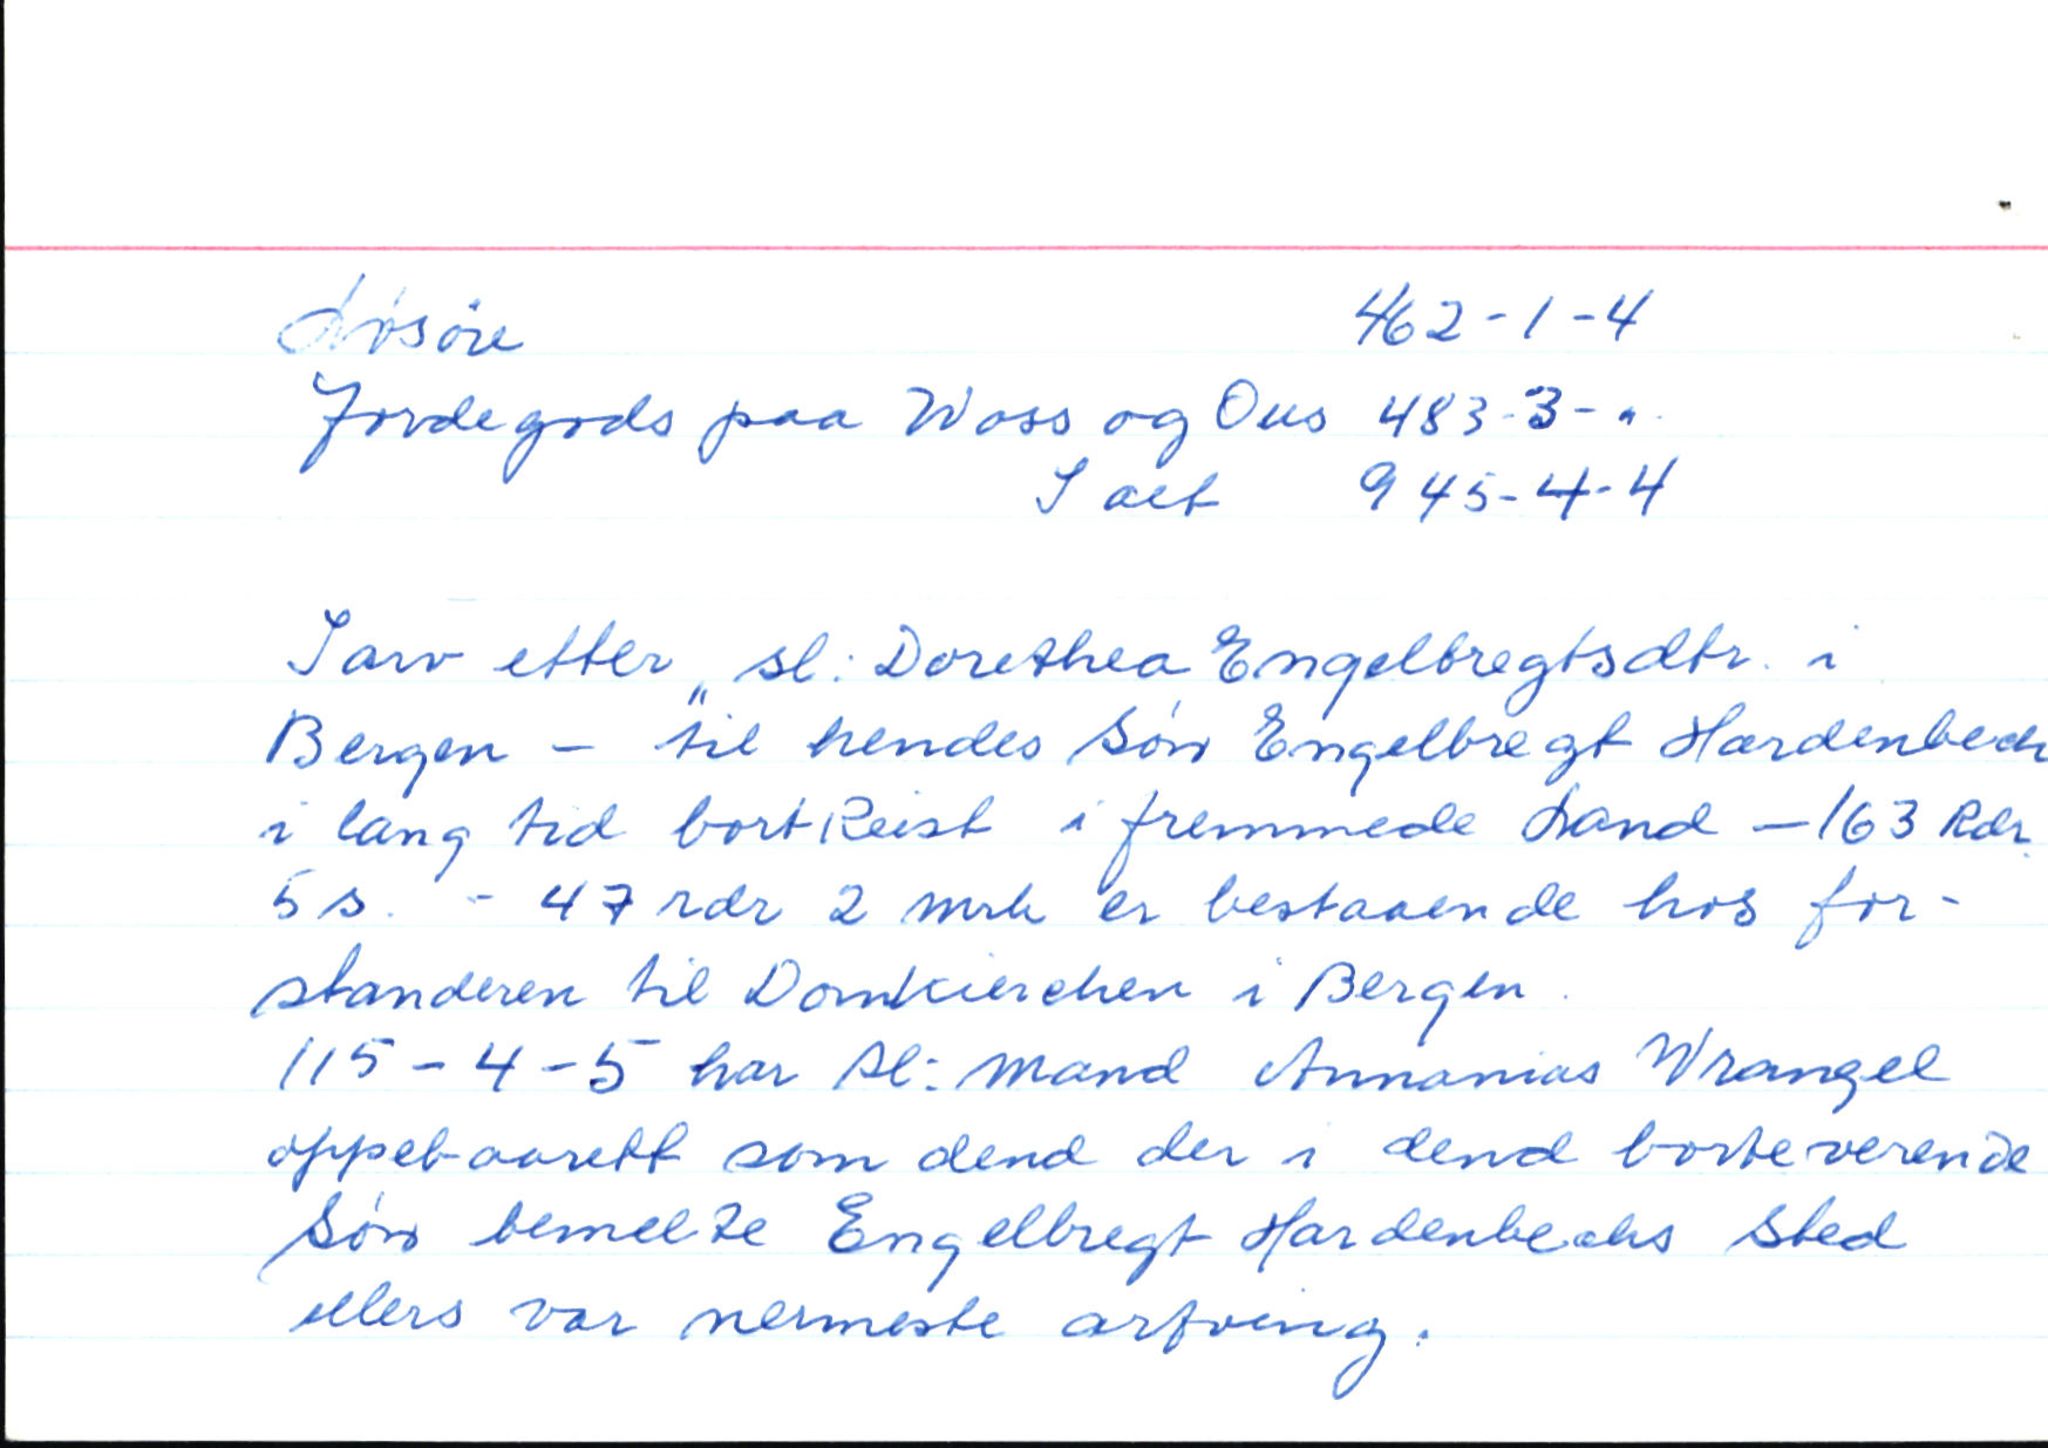 Løsöre 462-1-4
Jordegods paa Woss og Ous 483-3-"
I alt 945-4-4
I arv etter „sl: Dorethea Engelbregtsdtr. i
Bergen – til hendes Søn Engelbregt Hardenbech
i lang tid bortReist i fremmede Land – 163 Rdr.
5 s. - 47 rdr 2 mrk er bestaaende hos for-
standeren til Domkierchen i Bergen.
115-4-5 har Sl: Mand Annanias Wrangel
oppebaarett som dend der i dend borteverende
Søn bemelte Engelbregt Hardenbechs Sted
ellers var nermeste arfving.